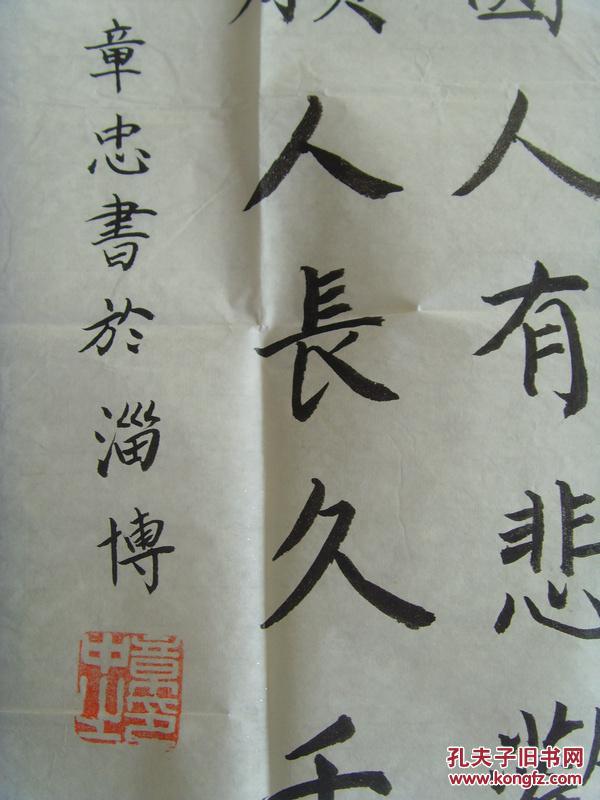 圆人有悲歡
願人長久千
章忠書於淄博
孔夫子旧书网
www.kongfz.com